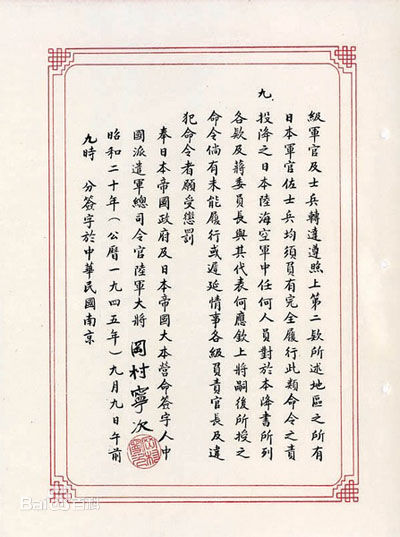 級軍官及士兵轉達遵照上第二欵所述地區之所有
日本軍官佐士兵均須負有完全履行此類命令之責
九、投降之日本陸海空軍中任何人員對於本降書所列
各欵及蔣委員長與其代表何應欽上將嗣後所授之
命令倘有未能履行或遲延情事各級負責官長及違
犯命令者願受懲罰
奉日本帝國政府及日本帝國大本營命簽字人中
國派遣軍總司令官陸軍大將 岡村寧次
昭和二十年（公曆一九四五年）九月九日午前
九時 分簽字於中華民國南京
Bai百科